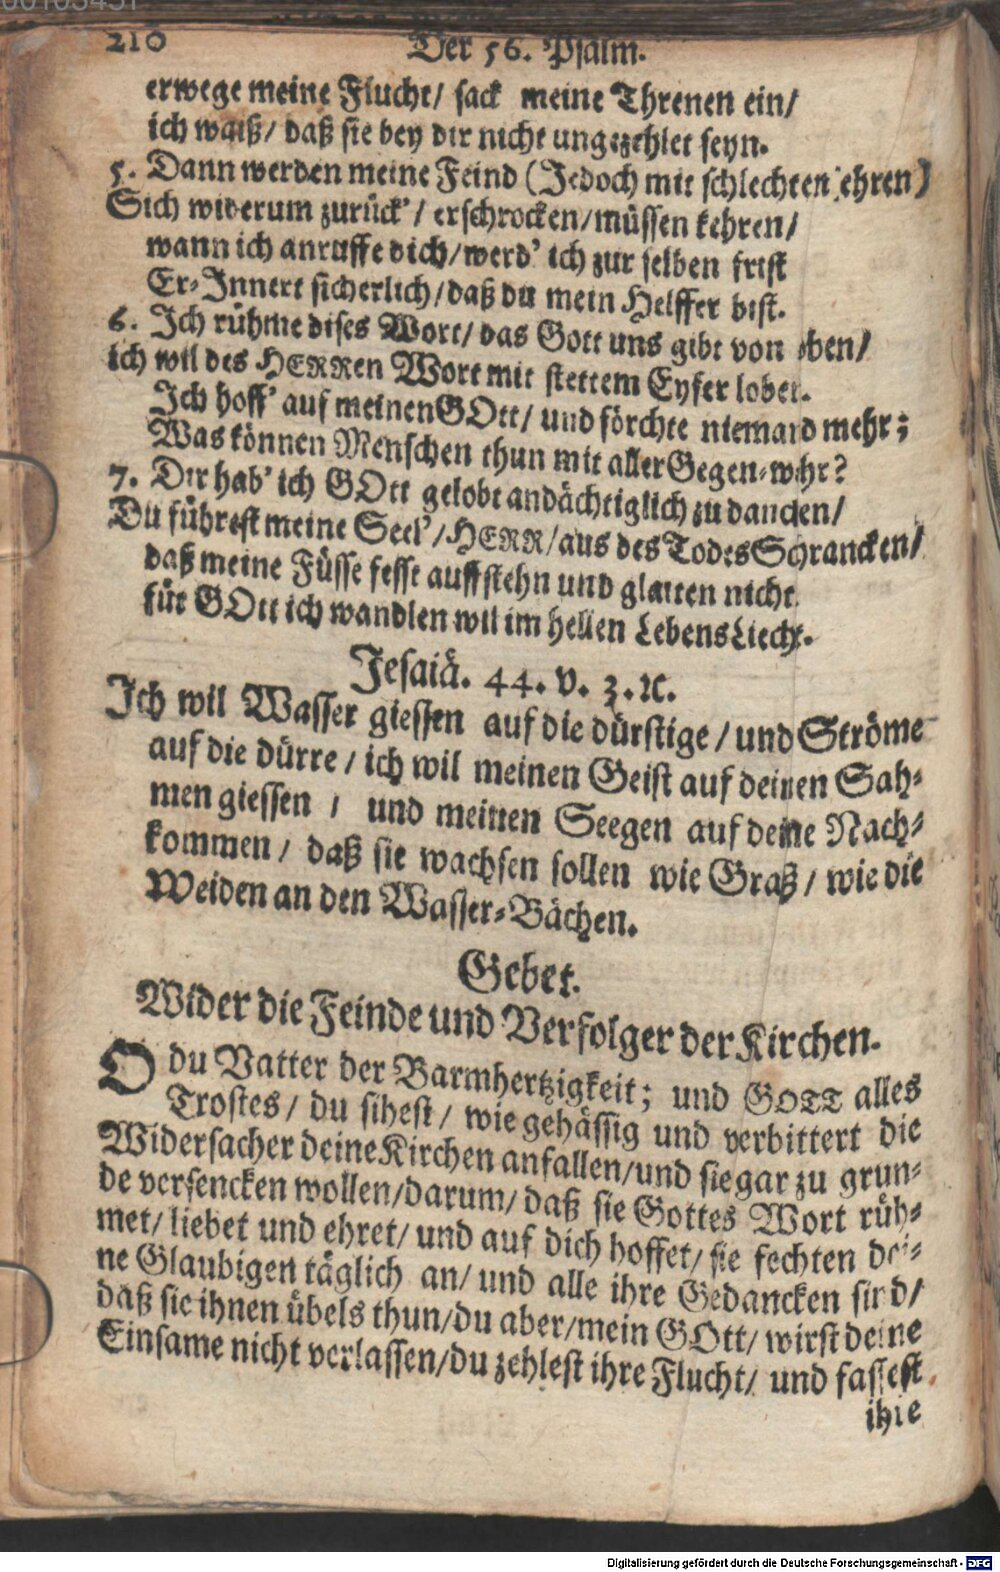 210 Der 56. Psalm.
erwege meine Flucht/ sack meine Threnen ein/
ich waiß/ daß sie bey dir nicht ungezehlet seyn.
5. Dann werden meine Feind (Jedoch mit schlechten ehren)
Sich widerum zurück'/ erschrocken/müssen kehren/
wann ich anruffe dich/werd' ich zur selben frist
Er-Innert sicherlich/daß du mein Helffer bist.
6. Ich rühme dises Wort/ das Gott uns gibt von oben/
ich wil des HERRen Wort mit stettem Eyfer loben.
Ich hoff' auf meinen GOtt/ und förchte niemand mehr;
Was können Menschen thun mit aller Gegen-wehr?
7. Dir hab' ich GOtt gelobt andächtiglich zu dancken/
Du führest meine Seel'/HERR/aus des Todes Schrancken/
daß meine Füsse fesst auffstehn und glatten nicht
für GOtt ich wandlen wil im hellen LebensLiecht.
Jesaiä. 44. v. 3. ꝛc.
Ich wil Wasser giessen auf die dürstige/und Ströme
auf die dürre/ich wil meinen Geist auf deinen Sah-
men giessen/ und meinen Seegen auf deine Nach-
kommen/ daß sie wachsen sollen wie Graß/ wie die
Weiden an den Wasser-Bächen.
Gebet.
Wider die Feinde und Verfolger der Kirchen.
O du Vatter der Barmhertzigkeit; und GOTT alles
Trostes/ du sihest/ wie gehässig und verbittert die
Widersacher deine Kirchen anfallen/und sie gar zu grun-
de versencken wollen/darum/ daß sie Gottes Wort rüh-
met/liebet und ehret/ und auf dich hoffet/sie fechten dei-
ne Glaubigen täglich an/ und alle ihre Gedancken sind/
daß sie ihnen übels thun/du aber/mein GOtt/ wirst deine
Einsame nicht verlassen/du zehlest ihre Flucht/ und fassest
ihre
Digitalisierung gefördert durch die Deutsche Forschungsgemeinschaft - DFG